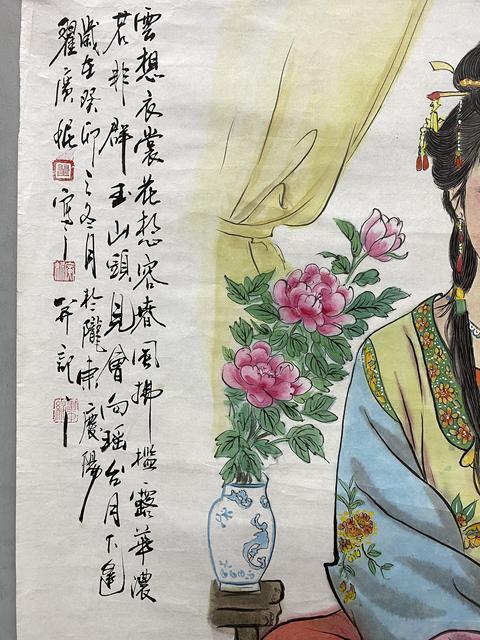 雲想衣裳花想容春風拂檻露華濃
若非群玉山頭見會向瑤台月下逢
歲在癸卯之冬月於隴東慶陽
翟廣 寫 並記